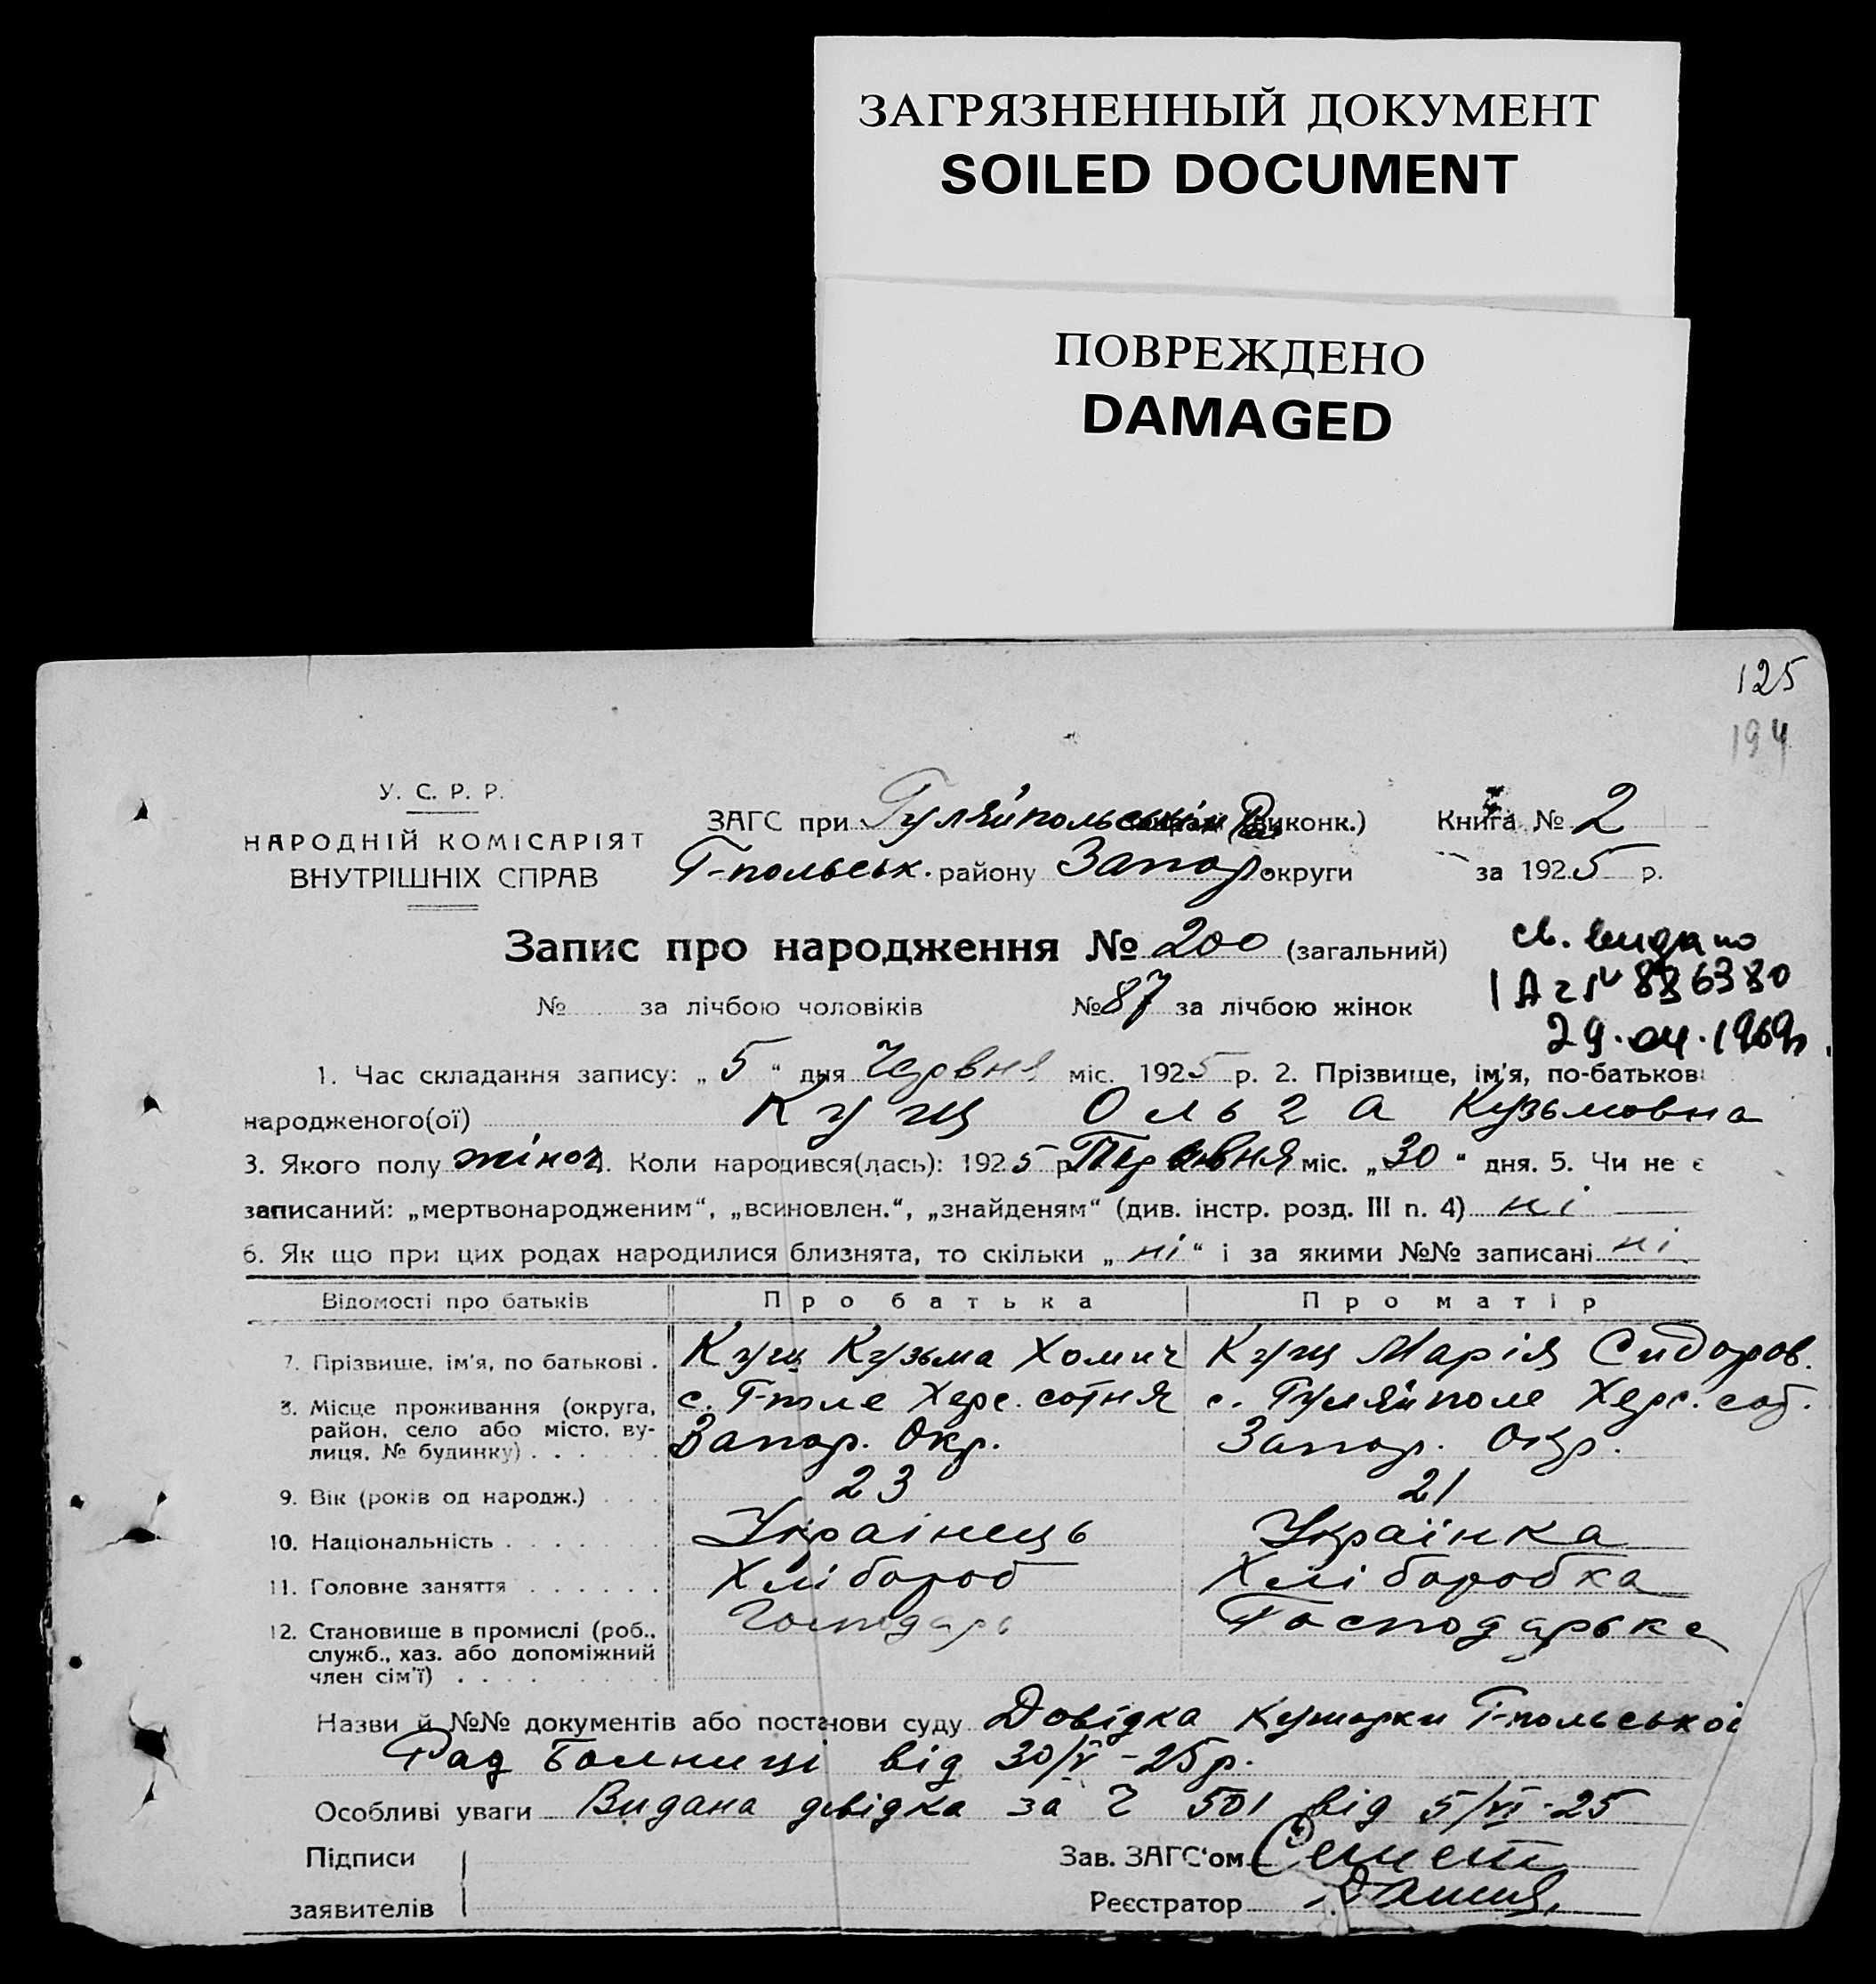 ЗАГРЯЗНЕННЫЙ ДОКУМЕНТ
SOILED DOCUMENT
ПОВРЕЖДЕНО
DAMAGED
125
194
У. С. Р. Р.
НАРОДНІЙ КОМІСАРІЯТ
ВНУТРІШНІХ СПРАВ
ЗАГС при Гуляйпольськім виконк.)
Г-польськ. району Запор округи
Книга № 2
за 1925 р.
Запис про народження № 200 (загальний)
№ за лічбою чоловіків №87 за лічбою жінок
св. видано
886380
29.04.1969
1. Час складання запису: „5“ дня Червня міс. 1925 р. 2. Прізвище, ім'я, по-батькові
народженого(ої) Кущ Ольга Кузьмовна
3. Якого полу жіноч. Коли народився(лась): 1925 р. міс. „30“ дня. 5. Чи не є
записаний: „мертвонародженим“, „всиновлен.“, „знайденям“ (див. інстр. розд. III п. 4) ні
6. Як що при цих родах народилися близнята, то скільки „ні“ і за якими №№ записані ні
Відомості про батьків Про батька Про матір
7. Прізвище, ім'я, по батькові . Кущ Кузьма Хомич Кущ Марія Сидоров.
8. Місце проживання (округа, район, село або місто, вулиця, № будинку) с. Г-поле Херс. сотня с. Гуляйполе Херс. сот.
Запор. Окр. Запор. Окр.
9. Вік (років од народж.) 23 21
10. Національність Українець Українка
11. Головне заняття Хлібороб Хліборобка
12. Становище в промислі (роб., служб., хаз. або допоміжний член сім'ї) Господарь Господарька
Назви й №№ документів або постанови суду Довідка Г-польської
Рад Больниці від 30/V-25р.
Особливі уваги Видана двідка за Ч 501 від 5/VI-25
Підписи
заявителів
Зав. ЗАГС'ом
Реєстратор